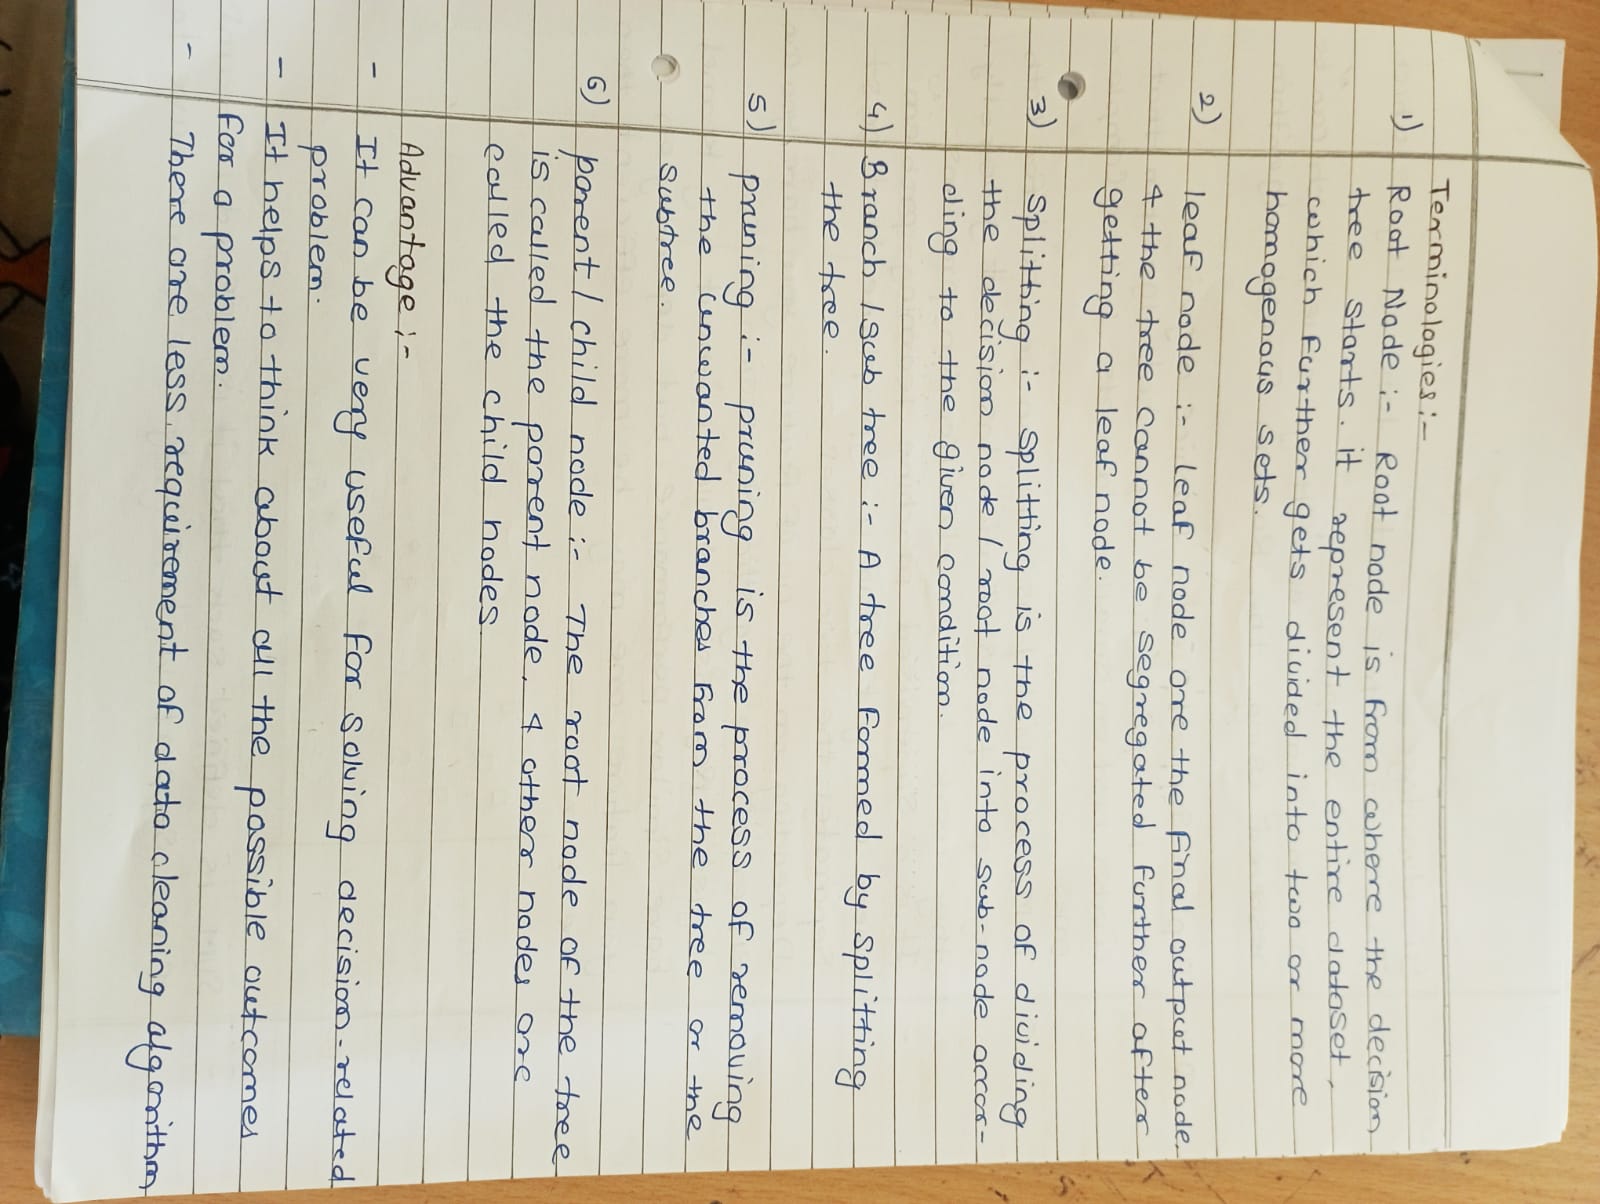 Terminologies :-
1) Root Node :- Root node is from where the decision
tree starts. it represent the entire dataset,
which further gets divided into two or more
homogenous sets.
2) leaf node :- leaf node are the final output node.
& the tree cannot be segregated further after
getting a leaf node.
3) Splitting :- splitting is the process of dividing
the decision node / root node into sub-node accor-
ding to the given condition.
4) Branch / sub tree :- A tree formed by splitting
the tree.
5) pruning :- pruning is the process of removing
the unwanted branches from the tree or the
subtree.
6) parent / child node :- The root node of the tree
is called the parent node, & other nodes are
called the child nodes.
Advantage :-
- It can be very useful for solving decision-related
problem.
- It helps to think about all the possible outcomes
for a problem.
- There are less requirement of data cleaning algorithm